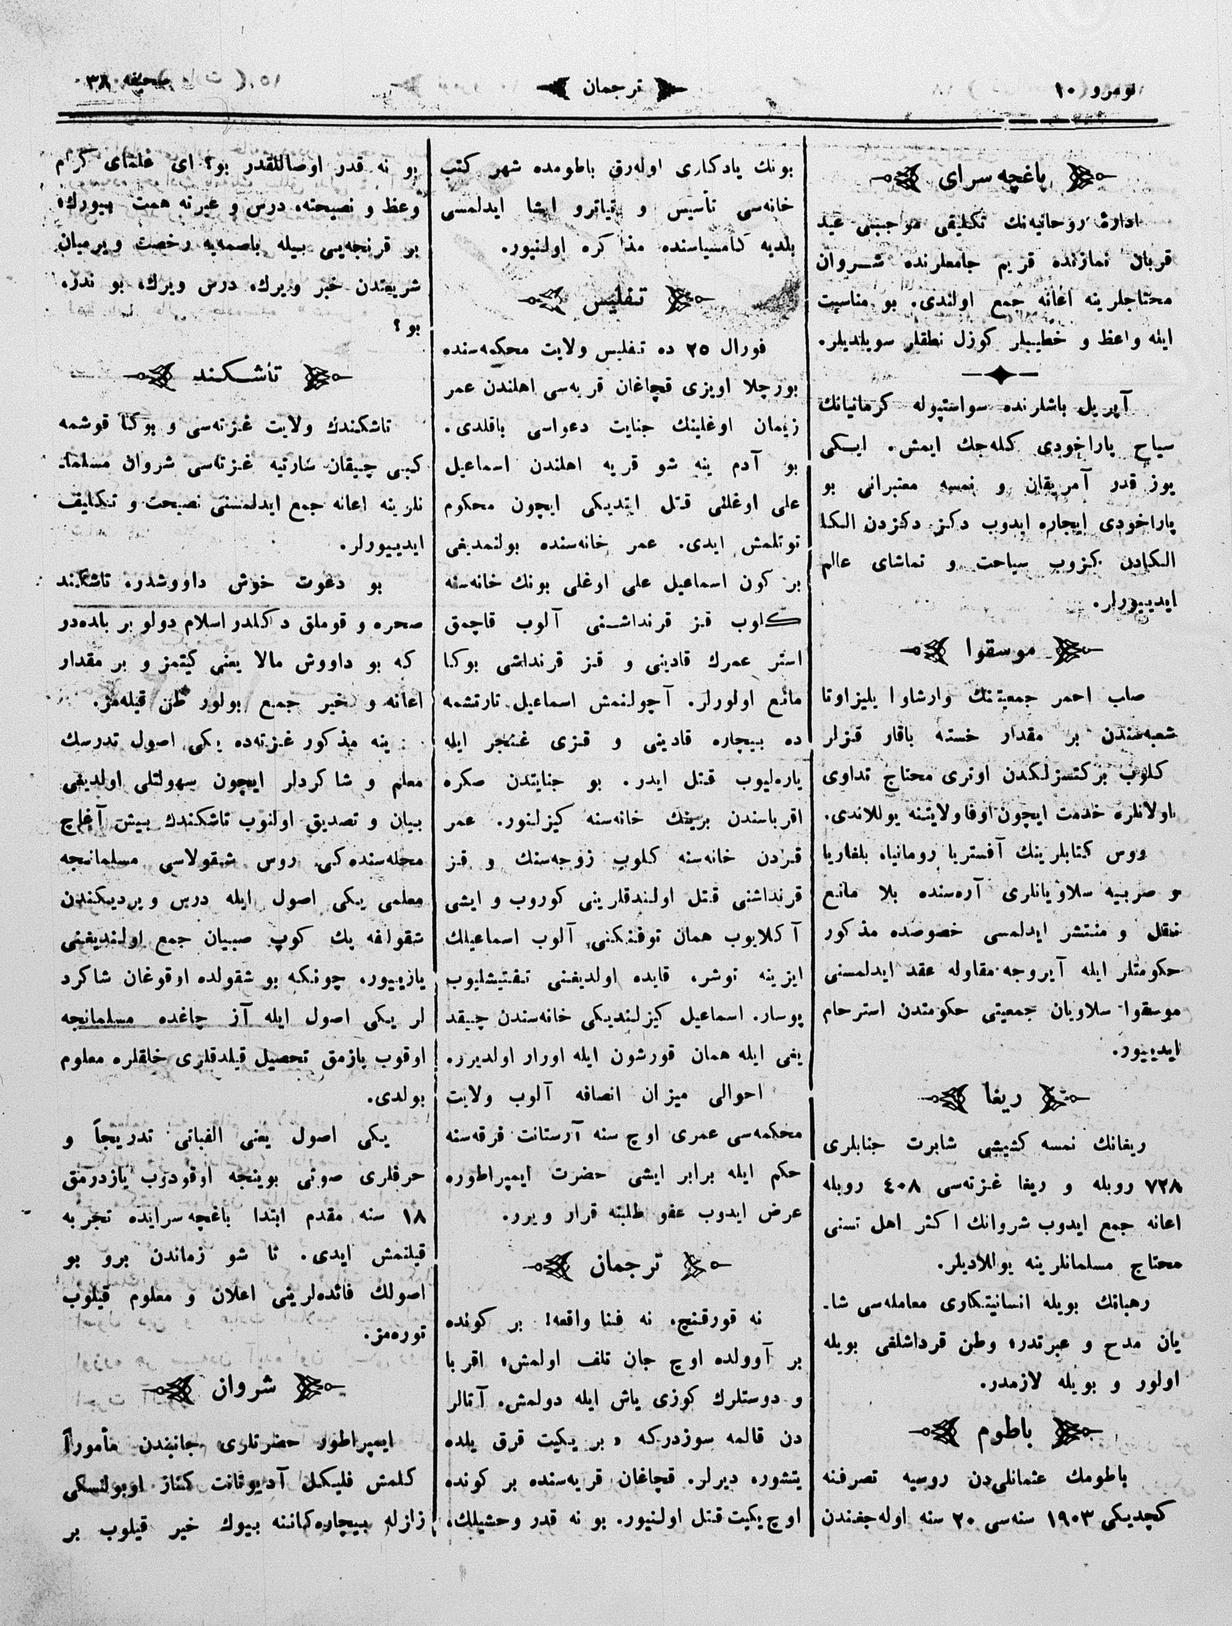 نومرو ۱۰
ترجمان
صحیفه ۳۸
باغچه سرای
ادارهٔ روحانیه‌نك تكلیفی موجبنی عید
قربان نمازنده قریم جامعلرنده شروان
محتاجلرینه اعانه جمع اولندی. بو مناسبت
ایله واعظ و خطیبلر كوزل نطقلر سویلدیلر.
آپریل باشلرنده سواستپوله كرمانیانك
سیاح پاراخودی كله‌جك ایمش. ایكی
یوز قدر آمریقان و نمسه معتبرانی بو
پاراخودی ایجاره ایدوب دكز دكزدن الكا
الكادن كزوب سیاحت و تماشای عالم
ایدییورلر.
موسقوا
صلب احمر جمعیتنك وارشاوا یلیزاوتا
شعبه‌سندن بر مقدار خسته باقار قزلر
كلوب بركتسزلكدن اوتری محتاج تداوی
اولانلره خدمت ایچون اوفا ولایتنه یوللاندی.
روس كتابلرینك آفستریا رومانیاه بلغاریا
و صربیه سلاویانلری آره‌سنده بلا مانع
نقل و منتشر ایدلمسی خصوصده مذكور
حكومتلر ایله آیروجه مقاوله عقد ایدلمسنی
موسقوا سلاویان جمعیتی حكومتدن استرحام
ایدییور.
ریغا
ریغانك نمسه كشیشی شابرت جنابلری
۷۲۸ روبله و ریغا غزته‌سی ۴۰۸ روبله
اعانه جمع ایدوب شروانك اكثر اهل تسنی
محتاج مسلمانلرینه یوللادیلر.
رهبانك بویله انسانیتكاری معامله‌سی شا-
یان مدح و عبرتدر؛ وطن قرداشلغی بویله
اولور و بویله لازمدر.
باطوم
باطومك عثمانلی‌دن روسیه تصرفنه
كچدیكی ۱۹۰۳ سنه‌سی ۲۰ سنه اوله‌جغندن
بونك یادكاری اوله‌رق باطومده شهر كتب
خانه‌سی تأسیس و تیاترو انشا ایدلمسی
بلدیه كامسیاسنده مذاكره اولنیور.
تفلیس
فورال ۲۵ ده تفلیس ولایت محكمه‌سنده
بورچلا اویزی قچاغان قریه‌سی اهلندن عمر
زیمان اوغلینك جنایت دعواسی باقلدی.
بو آدم ینه شو قریه اهلندن اسماعیل
علی اوغلنی قتل ایتدیكی ایچون محكوم
توتلمش ایدی. عمر خانه‌سنده بولنمدیغی
بر كون اسماعیل علی اوغلی بونك خانه‌سنه
كلوب قز قرنداشنی آلوب قاچمق
استر عمرك قادینی و قز قرنداشی بوكا
مانع اولورلر. آچولنمش اسماعیل تارتشمه
ده بیچاره قادینی و قزی غنجر ایله
یاره‌لیوب قتل ایدر. بو جنایتدن صكره
اقرباسندن برینك خانه‌سنه كیزلنور. عمر
قیردن خانه‌سنه كلوب زوجه‌سنك و قز
قرنداشنی قتل اولندقلرینی كوروب و ایشی
آكلایوب همان توفنكنی آلوب اسماعیلك
ایزینه توشر. قایده اولدیغنی تفتیشلیوب
پوسار. اسماعیل كیزلندیكی خانه‌سندن چیقد
یغی ایله همان قورشون ایله اورار اولدیرره
احوالی میزان انصافه آلوب ولایت
محكمه‌سی عمری اوچ سنه آرستانت فرقه‌سنه
حكم ایله برابر ایشی حضرت ایمپراطوره
عرض ایدوب عفو طلبنه قرار ویرر.
ترجمان
نه قورقنچ، نه فنا واقعه! بر كونده
بر آوولده اوچ جان تلف اولمش؛ اقربا
و دوستلرك كوزی یاش ایله دولمش. آتالر
دن قالمه سوزدركه «بر یكیت قرق یلده
یتشوره دیرلر. قچاغان قریه‌سنده بر كونده
اوچ یكیت قتل اولنیور. بو نه قدر وحشیلك،
بو نه قدر اوصاللقدر بو؟ ای علمای كرام
وعظ و نصیحته، درس و عبرته همت بیورك؛
بر قرنجه‌یی بیله باصمه‌یه رخصت ویرمیان
شریعتدن خبر ویرك، درس ویرك، بو ندر،
بو؟
تاشكند
تاشكندك ولایت غزته‌سی و بوكا قوشمه
كبی چیقان سارتیه غزته‌سی شروان مسلما-
نلرینه اعانه جمع ایدلمسنی نصیحت و تكلیف
ایدییورلر.
بو دعوت خوش داووشدره تاشكند
صحره و قوملق دكلدر اسلام دولو بر بلده‌در
كه بو داووش مالا یعنی كیتمز و بر مقدار
اعانه و خیر جمع بولور ظن قیله‌مز.
ینه مذكور غزته‌ده یكی اصول تدرسك
معلم و شاكردلر ایچون سهولتلی اولدیغی
بیان و تصدیق اولنوب تاشكندك بیش آغاچ
محله‌سنده‌كی روس شقولاسی مسلمانجه
معلمی یكی اصول ایله درس ویردیكندن
شقولغه یك كوپ صبیان جمع اولندیغینی
یازییور. چونكه بو شقولده اوقوغان شاكرد
لر یكی اصول ایله آز چاغده مسلمانجه
اوقوب یازمق تحصیل قیلدقلری خلقلره معلوم
بولدی.
یكی اصول یعنی الفبانی تدریجاً و
حرفلری صوتی بوینجه اوقودوب یازدرمق
۱۸ سنه مقدم ابتدا باغچه‌سرایده تجربه
قیلنمش ایدی. تا شو زماندن برو بو
اصولك فائده‌لرینی اعلان و معلوم قیلوب
توره‌مز.
شروان
ایمپراطور حضرتلری جانبندن مأموراً
كلمش فلیكل آدیوتانت كناز اوبولنسكی
زلزله بیچاره‌كاننه بیوك خیر قیلوب بر